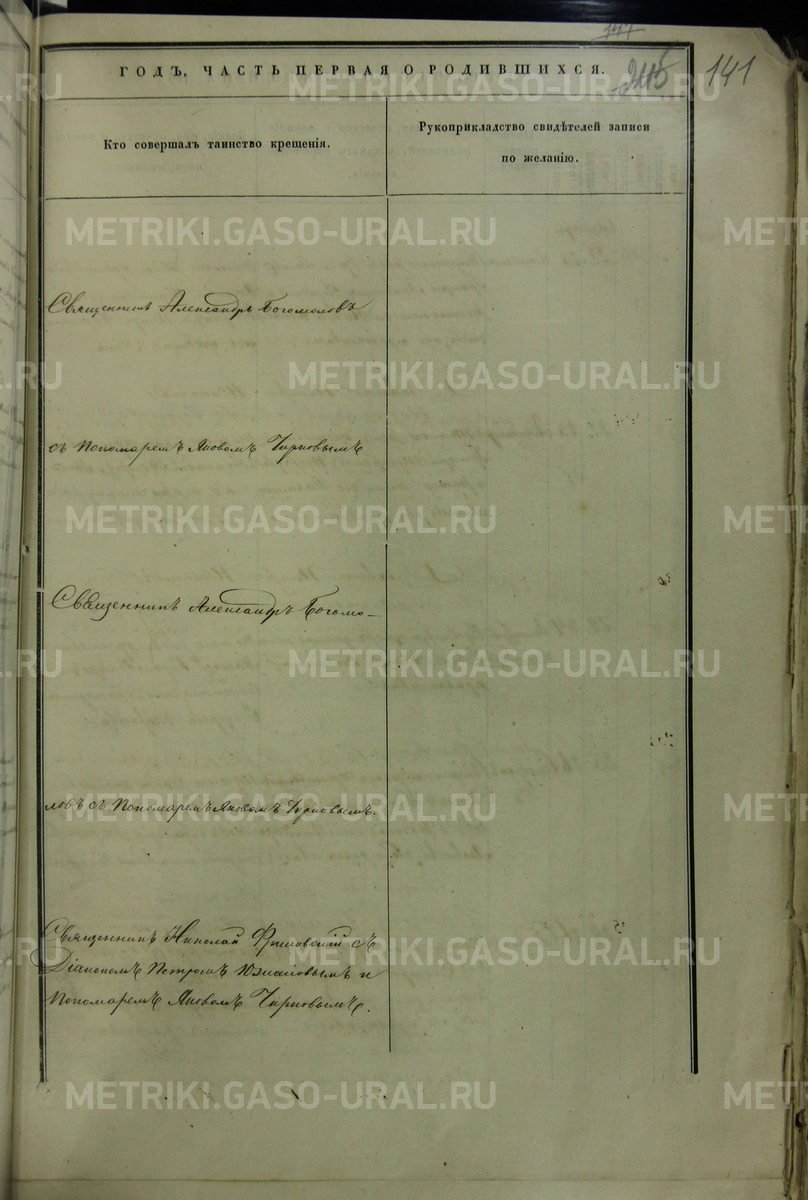 141
ГОДЪ, ЧАСТЬ ПЕРВАЯ О РОДИВШИХСЯ.
Кто совершалъ таинство крещенія.
Рукоприкладство свидѣтелей записи
по желанію.
Священникъ Александръ Богомоловъ
съ Пономаремъ Яковомъ Чирковымъ
Священникъ Александръ Богомо-
ловъ съ Пономаремъ Яковомъ Чирковымъ.
Священникъ Николай съ
Діакономъ Петромъ и
Пономаремъ Яковомъ Чирковымъ.
METRIKI.GASO-URAL.RU